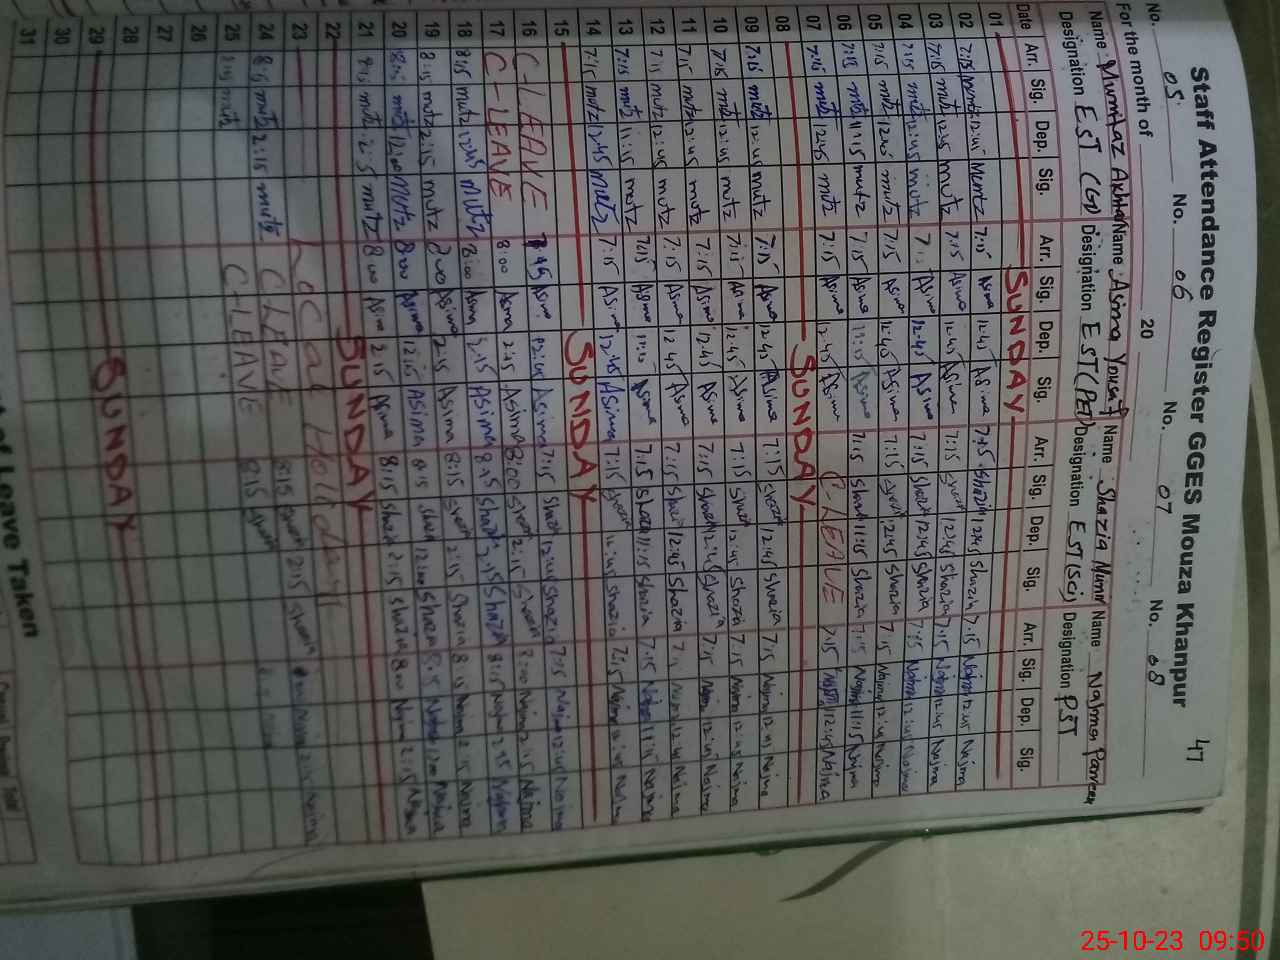 Staff Attendance Register GGES Mouza Khanpur 47
For the month of 20
No. 05 No. 06 No. 07 No. 08
Name: Mumtaz Akhtar Name: Asima Yousaf Name: Shazia Munir Name: Najma Parveen
Designation EST (GP) Designation EST (PET) Designation EST (Sci) Designation PST
Date Arr. Sig. Dep. Sig. Arr. Sig. Dep. Sig. Arr. Sig. Dep. Sig. Arr. Sig. Dep. Sig.
01 SUNDAY
02 7:15 Mumtz 12:45 Mumtz 7:15 Asima 12:45 Asima 7:15 Shazia 12:45 Shazia 7:15 Najma 12:45 Najma
03 7:15 mutz 12:45 mutz 7:15 Asima 12:45 Asima 7:15 Shazia 12:45 Shazia 7:15 Najma 12:45 Najma
04 7:15 mutz 12:45 mutz Asima 12:45 Asima 7:15 Shazia 12:45 Shazia 7:15 Najma 12:45 Najma
05 7:15 mutz 12:45 mutz 7:15 Asima 12:45 Asima 7:15 Shazia 12:45 Shazia 7:15 Najma 12:45 Najma
06 7:15 mutz 11:15 mutz 7:15 Asima 11:15 Asima 7:15 Shazia 11:15 Shazia 7:15 Najma 11:15 Najma
07 7:15 mutz 12:45 mutz 7:15 Asima 12:45 Asima C-LEAVE 7:15 Najma 12:45 Najma
08 SUNDAY
09 7:15 mutz 12:45 mutz 7:15 Asima 12:45 Asima 7:15 Shazia 12:45 Shazia 7:15 Najma 12:45 Najma
10 7:15 mutz 12:45 mutz 7:15 Asima 12:45 Asima 7:15 Shazia 12:45 Shazia 7:15 Najma 12:45 Najma
11 7:15 mutz 12:45 mutz 7:15 Asima 12:45 Asima 7:15 Shazia 12:45 Shazia 7:15 Najma 12:45 Najma
12 7:15 mutz 12:45 mutz 7:15 Asima 12:45 Asima 7:15 Shazia 12:45 Shazia 7:15 Najma 12:45 Najma
13 7:15 mutz 11:15 mutz 7:15 Asima 11:15 Asima 7:15 Shazia 11:15 Shazia 7:15 Najma 11:15 Najma
14 7:15 mutz 12:45 mutz 7:15 Asima 12:45 Asima 7:15 Shazia 12:45 Shazia 7:15 Najma 12:45 Najma
15 SUNDAY
16 C-LEAVE 7:45 Asima 12:45 Asima 7:15 Shazia 12:45 Shazia 7:15 Najma 12:45 Najma
17 C-LEAVE 8:00 Asma 2:15 Asima 8:00 Shazia 2:15 Shazia 8:00 Najma 2:15 Najma
18 8:15 mutz 12:45 mutz 8:00 Asma 2:15 Asima 8:15 Shazia 2:15 Shazia 8:15 Najma 2:45 Najma
19 8:15 mutz 2:15 mutz 8:00 Asima 2:15 Asima 8:15 Shazia 2:15 Shazia 8:15 Najma 2:15 Najma
20 8:15 mutz 12:00 Mutz 8:00 Asima 12:15 Asima 8:15 Shazia 12:00 Shazia 8:15 Najma 12:00 Najma
21 8:15 mutz 2:15 mutz 8:00 Asima 2:15 Asima 8:15 Shazia 2:15 Shazia 8:00 Najma 2:15 Najma
22 SUNDAY
23 Local Holiday
24 8:15 mutz 2:15 mutz C LEAVE 8:15 Shazia 2:15 Shazia Najma 2:15 Najma
25 8:15 mutz C-LEAVE 8:15 Shazia
26
27
28
29 SUNDAY
30
31
of Leave Taken
25-10-23 09:50